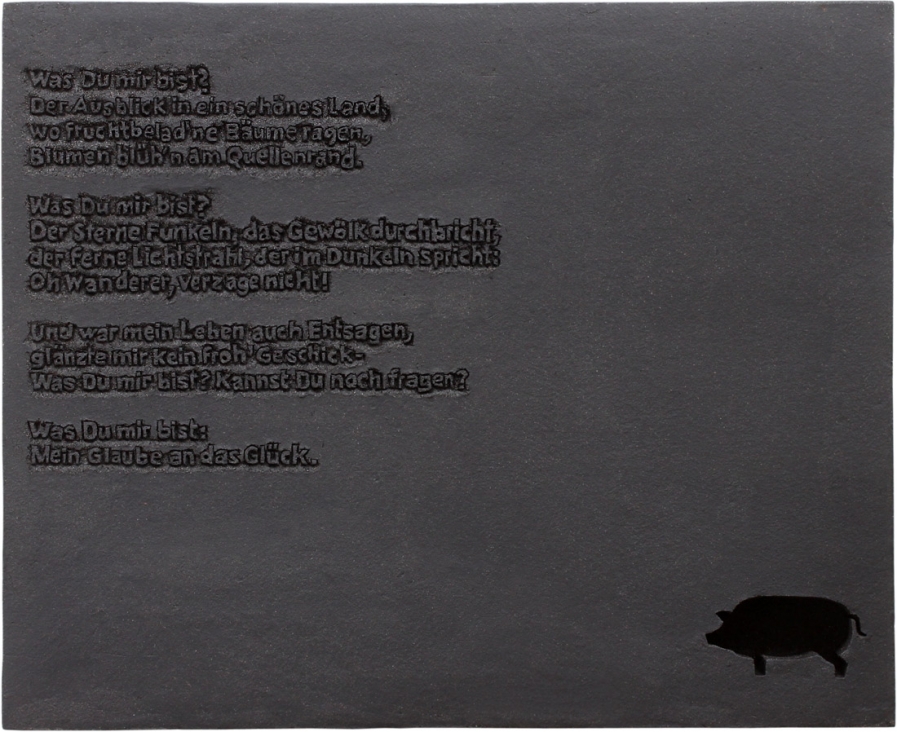 Was Du mir bist?
Der Ausblick in ein schönes Land,
wo fruchtbelad'ne Bäume ragen,
Blumen blüh'n am Quellenrand.
Was Du mir bist?
Der Sterne Funkeln, das Gewölk durchbricht,
der ferne Lichtstrahl, der im Dunkeln spricht:
Oh Wanderer, verzage nicht!
Und war mein Leben auch Entsagen,
glänzte mir kein froh' Geschick-
Was Du mir bist? Kannst Du noch fragen?
Was Du mir bist:
Mein Glaube an das Glück.